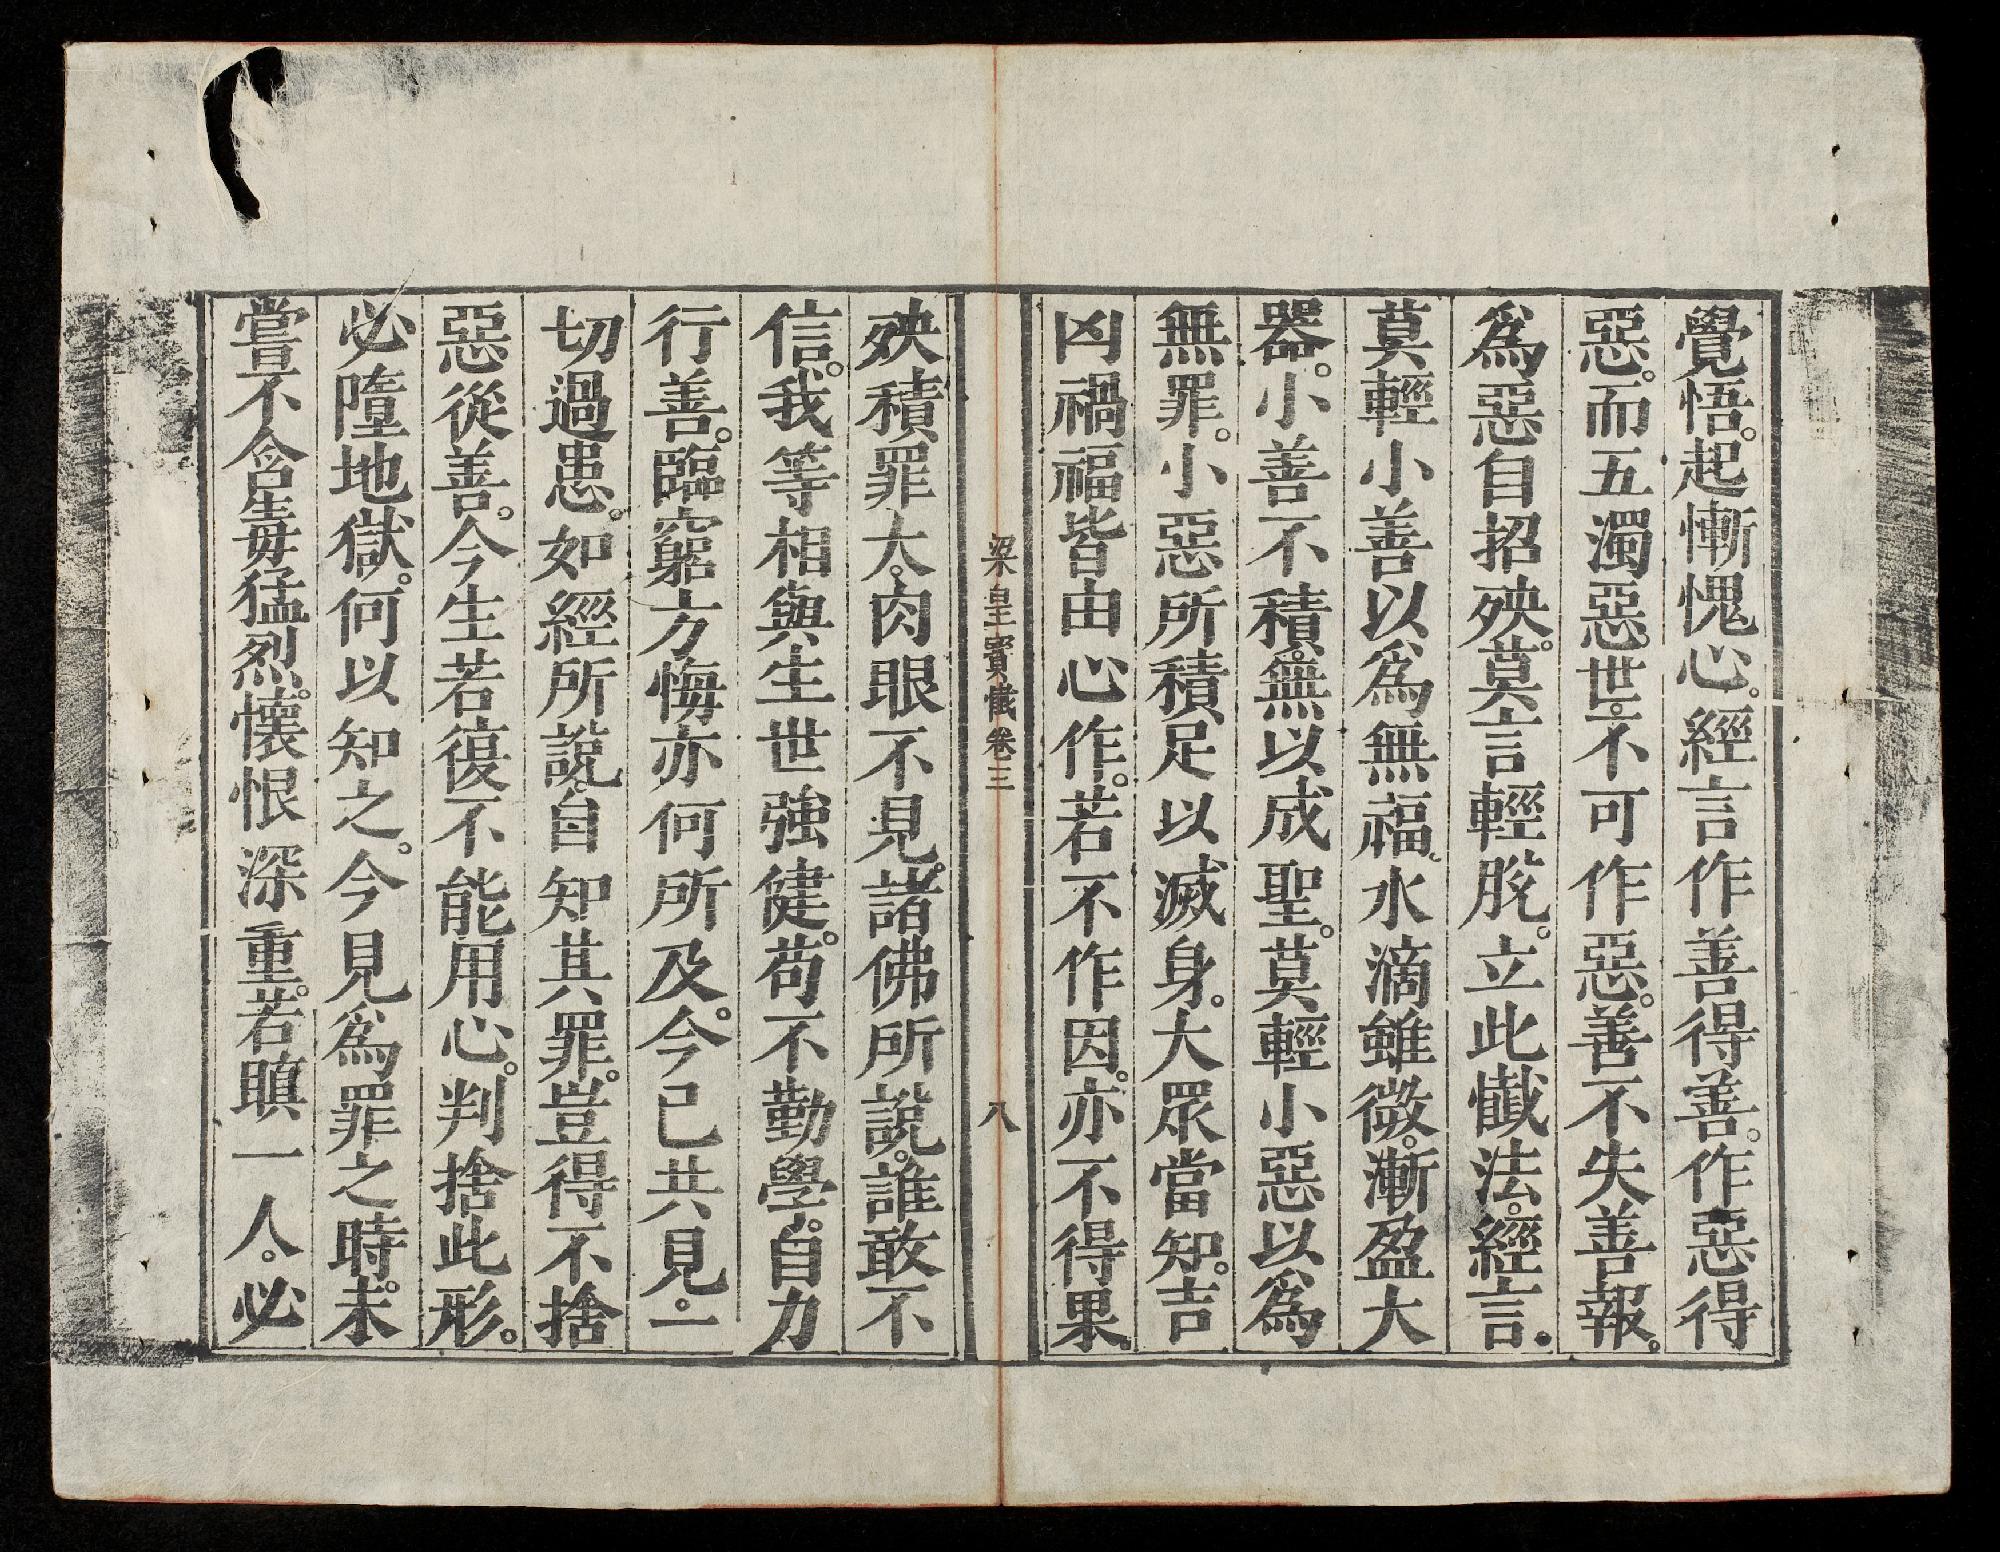 覺悟。起慚愧心。經言作善得善。作惡得
惡。而五濁惡世。不可作惡。善不失善報。
爲惡自招殃。莫言輕脫。立此懺法。經言。
莫輕小善以爲無福。水滴雖微。漸盈大
器。小善不積。無以成聖。莫輕小惡以爲
無罪。小惡所積。足以滅身。大眾當知。吉
凶禍福皆由心作。若不作因。亦不得果。
梁皇寶懺卷三
八
殃積罪大。肉眼不見。諸佛所說。誰敢不
信。我等相與生世強健。苟不勤學。自力
行善。臨窮方悔亦何所及。今已共見。一
切過患。如經所說。自知其罪。豈得不捨
惡從善。今生若復不能用心。判捨此形。
必墮地獄。何以知之。今見爲罪之時。未
嘗不含毒猛烈。懷恨深重。若瞋一人。必